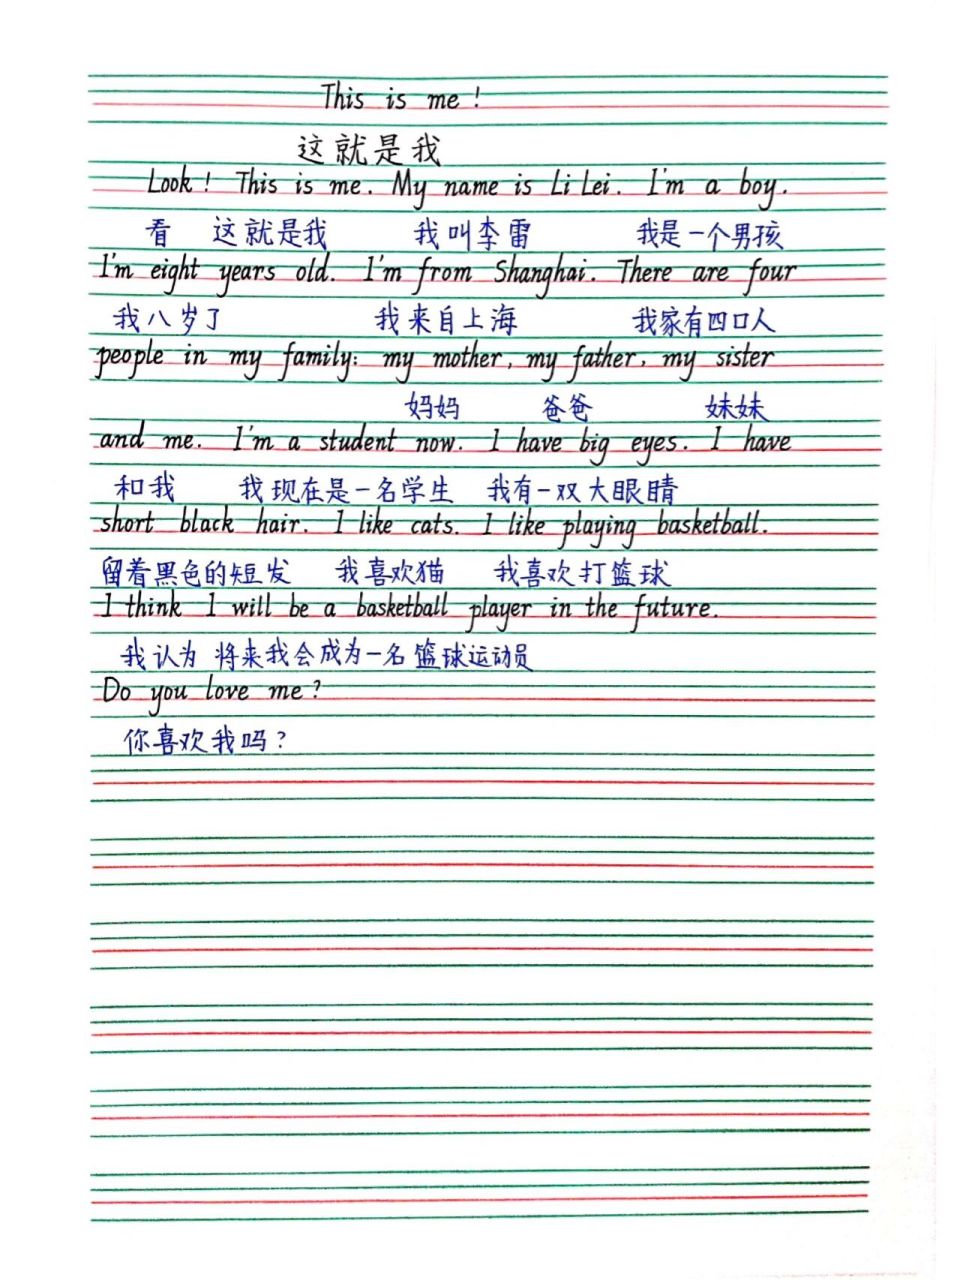 This is me!
这就是我
Look! This is me. My name is Li Lei. I'm a boy.
看 这就是我 我叫李雷 我是一个男孩
I'm eight years old. I'm from Shanghai. There are four
我八岁了 我来自上海 我家有四口人
people in my family: my mother, my father, my sister
妈妈 爸爸 妹妹
and me. I'm a student now. I have big eyes. I have
和我 我现在是一名学生 我有一双大眼睛
short black hair. I like cats. I like playing basketball.
留着黑色的短发 我喜欢猫 我喜欢打篮球
I think I will be a basketball player in the future.
我认为 将来我会成为一名篮球运动员
Do you love me?
你喜欢我吗?